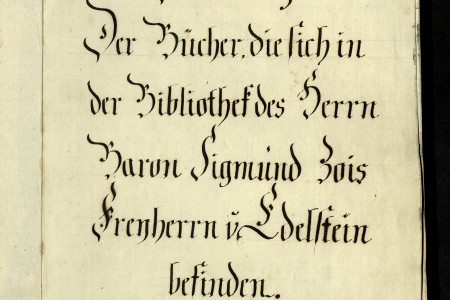 Der Bücher, die sich in
der Bibliothek des Herrn
Baron Sigmund Zois
Freyherrn v. Edelstein
befinden.